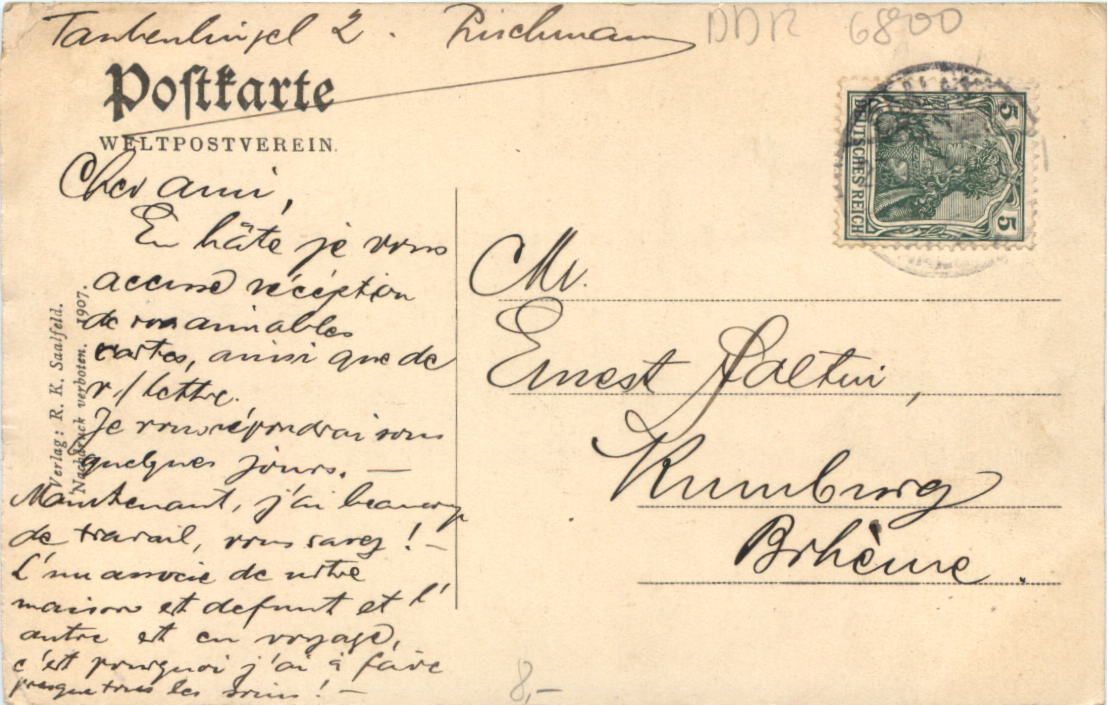 2.
DDR 68900
Postkarte
WELTPOSTVEREIN.
5 DEUTSCHES REICH 5
Cher ami,
En hâte je vous
accuse réception
de vos aimables
cartes, ainsi que de
v/ lettre.
Je vous répondrai sous
quelques jours. —
Maintenant, j'ai beaucoup
de travail, vous savez! —
L'un associé de notre
maison est defunt et l'
autre est en voyage,
c'est pourquoi j'ai à faire
presque tous les soins! —
Verlag: R. K. Saalfeld.
Nachdruck verboten. 1907.
Mr.
Ernest
Rumburg
Bohème.
8,-